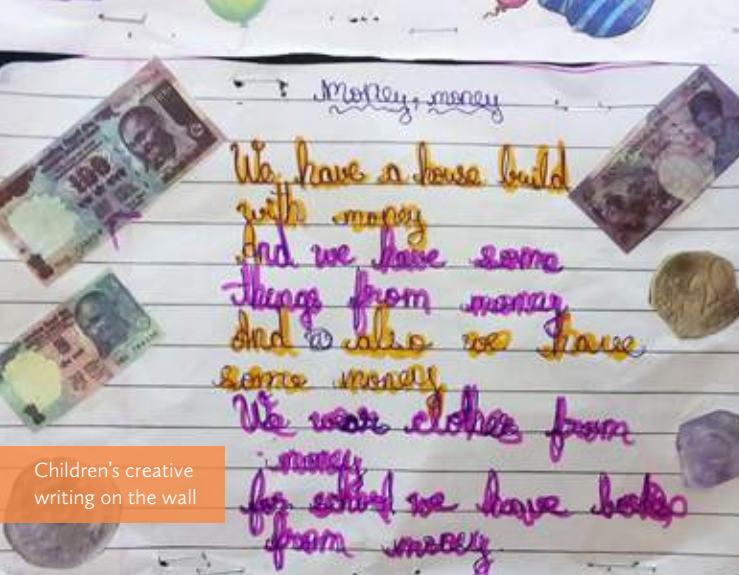 Money, money
We have a house build
with money
And we have some
things from money
And also we have
some money
We wear clothes from
money
for school we have books
from money
100
Children's creative
writing on the wall